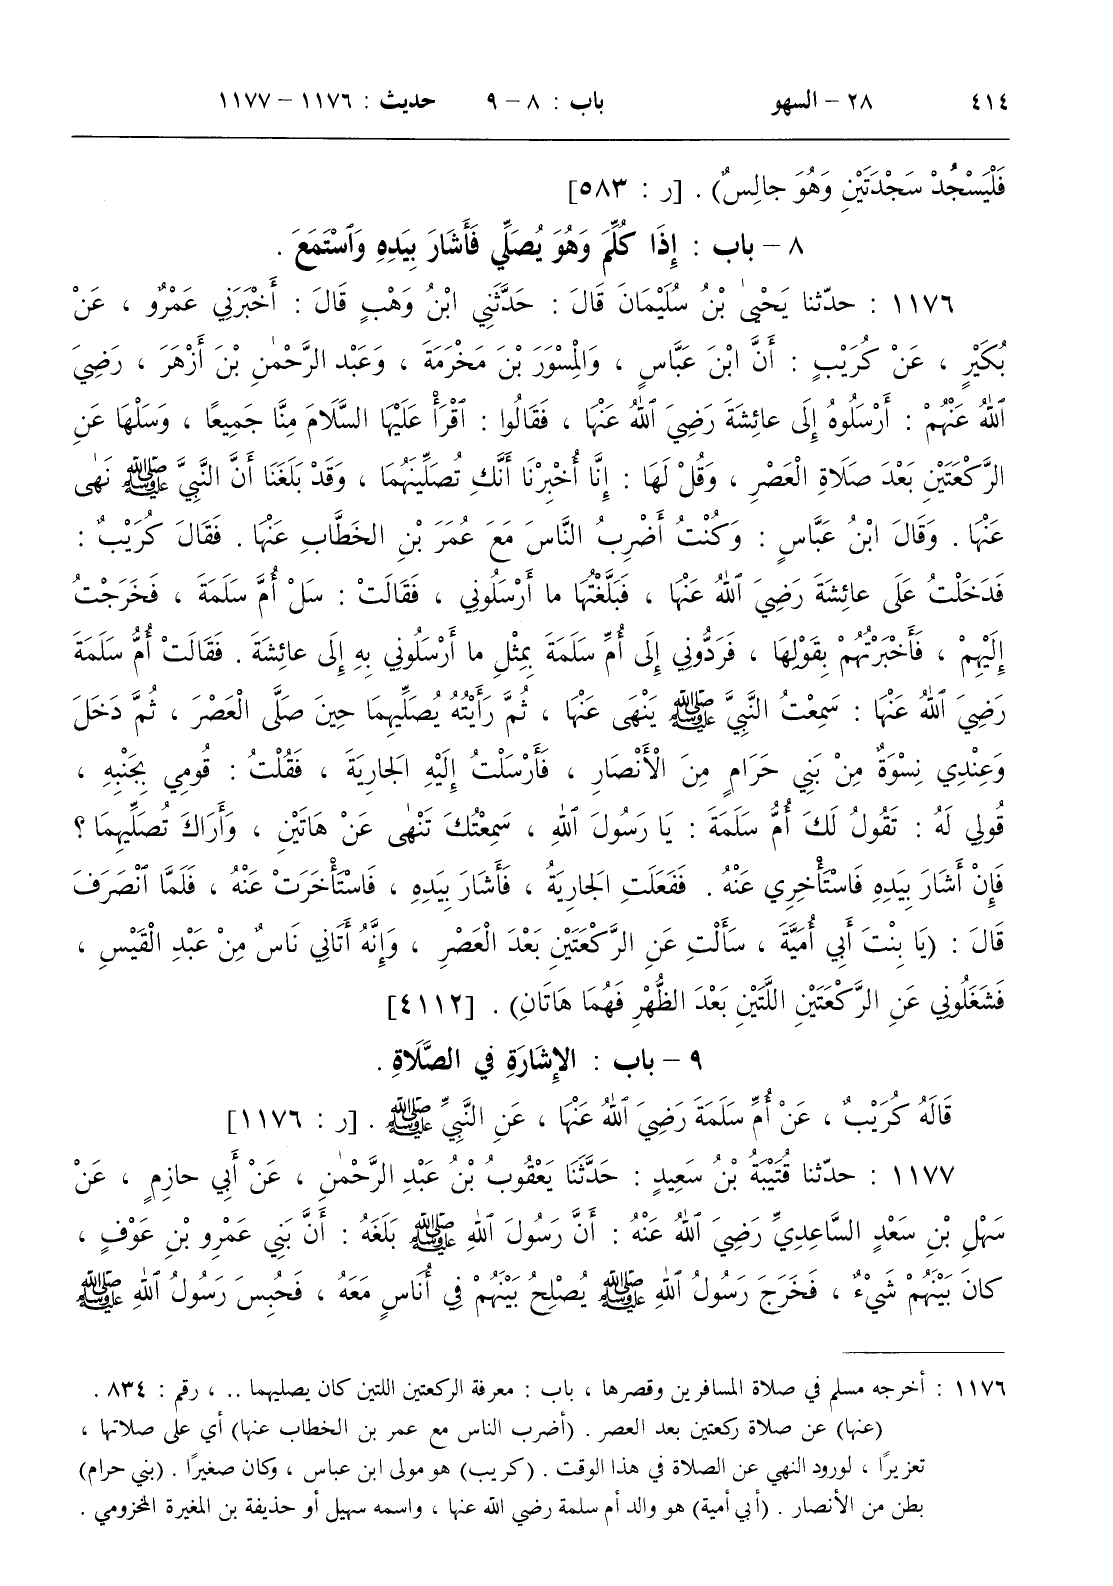 ٤١٤ ٢٨ – السهو باب : ٨ – ٩ حديث : ١١٧٦ – ١١٧٧
فَلْيَسْجُدْ سَجْدَتَيْنِ وَهُوَ جالِسٌ) . [ر : ٥٨٣]
٨ – باب : إِذَا كُلِّمَ وَهُوَ يُصَلِّي فَأَشَارَ بِيَدِهِ وَٱسْتَمَعَ .
١١٧٦ : حدّثنا يَحْيىٰ بْنُ سُلَيْمَانَ قَالَ : حَدَّثَنِي ابْنُ وَهْبٍ قَالَ : أَخْبَرَنِي عَمْرٌو ، عَنْ
بُكَيْرٍ ، عَنْ كُرَيْبٍ : أَنَّ ابْنَ عَبَّاسٍ ، وَالْمِسْوَرَ بْنَ مَخْرَمَةَ ، وَعَبْدَ الرَّحْمٰنِ بْنَ أَزْهَرَ ، رَضِيَ
ٱللهُ عَنْهُمْ : أَرْسَلُوهُ إِلَى عائِشَةَ رَضِيَ ٱللهُ عَنْهَا ، فَقَالُوا : ٱقْرَأْ عَلَيْهَا السَّلَامَ مِنَّا جَمِيعًا ، وَسَلْهَا عَنِ
الرَّكْعَتَيْنِ بَعْدَ صَلَاةِ الْعَصْرِ ، وَقُلْ لَهَا : إِنَّا أُخْبِرْنَا أَنَّكِ تُصَلِّينَهُمَا ، وَقَدْ بَلَغَنَا أَنَّ النَّبِيَّ ﷺ نَهٰى
عَنْهَا . وَقَالَ ابْنُ عَبَّاسٍ : وَكُنْتُ أَضْرِبُ النَّاسَ مَعَ عُمَرَ بْنِ الخَطَّابِ عَنْهَا . فَقَالَ كُرَيْبٌ :
فَدَخَلْتُ عَلَى عائِشَةَ رَضِيَ ٱللهُ عَنْهَا ، فَبَلَّغْتُهَا ما أَرْسَلُونِي ، فَقَالَتْ : سَلْ أُمَّ سَلَمَةَ ، فَخَرَجْتُ
إِلَيْهِمْ ، فَأَخْبَرْتُهُمْ بِقَوْلِهَا ، فَرَدُّونِي إِلَى أُمِّ سَلَمَةَ بِمِثْلِ ما أَرْسَلُونِي بِهِ إِلَى عائِشَةَ . فَقَالَتْ أُمُّ سَلَمَةَ
رَضِيَ ٱللهُ عَنْهَا : سَمِعْتُ النَّبِيَّ ﷺ يَنْهَى عَنْهَا ، ثُمَّ رَأَيْتُهُ يُصَلِّيهِما حِينَ صَلَّى الْعَصْرَ ، ثُمَّ دَخَلَ
وَعِنْدِي نِسْوَةٌ مِنْ بَنِي حَرَامٍ مِنَ الْأَنْصَارِ ، فَأَرْسَلْتُ إِلَيْهِ الجَارِيَةَ ، فَقُلْتُ : قُومِي بِجَنْبِهِ ،
قُولِي لَهُ : تَقُولُ لَكَ أُمُّ سَلَمَةَ : يَا رَسُولَ ٱللهِ ، سَمِعْتُكَ تَنْهٰى عَنْ هَاتَيْنِ ، وَأَرَاكَ تُصَلِّيهِمَا ؟
فَإِنْ أَشَارَ بِيَدِهِ فَاسْتَأْخِرِي عَنْهُ . فَفَعَلَتِ الجَارِيَةُ ، فَأَشَارَ بِيَدِهِ ، فَاسْتَأْخَرَتْ عَنْهُ ، فَلَمَّا ٱنْصَرَفَ
قَالَ : (يَا بِنْتَ أَبِي أُمَيَّةَ ، سَأَلْتِ عَنِ الرَّكْعَتَيْنِ بَعْدَ الْعَصْرِ ، وَإِنَّهُ أَتَانِي نَاسٌ مِنْ عَبْدِ الْقَيْسِ ،
فَشَغَلُونِي عَنِ الرَّكْعَتَيْنِ اللَّتَيْنِ بَعْدَ الظُّهْرِ فَهُمَا هَاتَانِ) . [٤١١٢]
٩ – باب : الإِشَارَةِ فِي الصَّلَاةِ .
قَالَهُ كُرَيْبٌ ، عَنْ أُمِّ سَلَمَةَ رَضِيَ ٱللهُ عَنْهَا ، عَنِ النَّبِيِّ ﷺ . [ر : ١١٧٦]
١١٧٧ : حدّثنا قُتَيْبَةُ بْنُ سَعِيدٍ : حَدَّثَنَا يَعْقُوبُ بْنُ عَبْدِ الرَّحْمٰنِ ، عَنْ أَبِي حازِمٍ ، عَنْ
سَهْلِ بْنِ سَعْدٍ السَّاعِدِيِّ رَضِيَ ٱللهُ عَنْهُ : أَنَّ رَسُولَ ٱللهِ ﷺ بَلَغَهُ : أَنَّ بَنِي عَمْرِو بْنِ عَوْفٍ ،
كانَ بَيْنَهُمْ شَيْءٌ ، فَخَرَجَ رَسُولُ ٱللهِ ﷺ يُصْلِحُ بَيْنَهُمْ فِي أُنَاسٍ مَعَهُ ، فَحُبِسَ رَسُولُ ٱللهِ ﷺ
١١٧٦ : أخرجه مسلم في صلاة المسافرين وقصرها ، باب : معرفة الركعتين اللتين كان يصليهما .. ، رقم : ٨٣٤ .
(عنها) عن صلاة ركعتين بعد العصر . (أضرب الناس مع عمر بن الخطاب عنها) أي على صلاتها ،
تعزيرًا ، لورود النهي عن الصلاة في هذا الوقت . (كريب) هو مولى ابن عباس ، وكان صغيرًا . (بني حرام)
بطن من الأنصار . (أبي أمية) هو والد أم سلمة رضي الله عنها ، واسمه سهيل أو حذيفة بن المغيرة المخزومي .